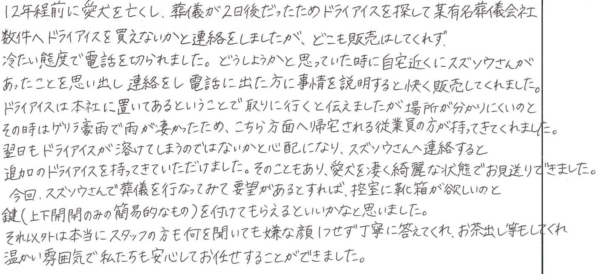 12年程前に愛犬を亡くし、葬儀が2日後だったためドライアイスを探して某有名葬儀会社
数件へドライアイスを買えないかと連絡をしましたが、どこも販売はしてくれず
冷たい態度で電話を切られました。どうしようかと思っていた時に自宅近くにスズソウさんが
あったことを思い出し連絡をし電話に出た方に事情を説明すると快く販売してくれました。
ドライアイスは本社に置いてあるということで取りに行くと伝えましたが場所が分かりにくいのと
その時はゲリラ豪雨で雨が凄かったため、こちら方面へ帰宅される従業員の方が持ってきてくれました。
翌日もドライアイスが溶けてしまうのではないかと心配になり、スズソウさんへ連絡すると
追加のドライアイスを持ってきていただけました。そのこともあり、愛犬を凄く綺麗な状態でお見送りできました。
今回、スズソウさんで葬儀を行なってみて要望があるとすれば、控室に靴箱が欲しいのと
鍵(上下開閉のみの簡易的なもの)を付けてもらえるといいかなと思いました。
それ以外は本当にスタッフの方も何を聞いても嫌な顔1つせず丁寧に答えてくれ、お茶出し等もしてくれ
温かい雰囲気で私たちも安心してお任せすることができました。